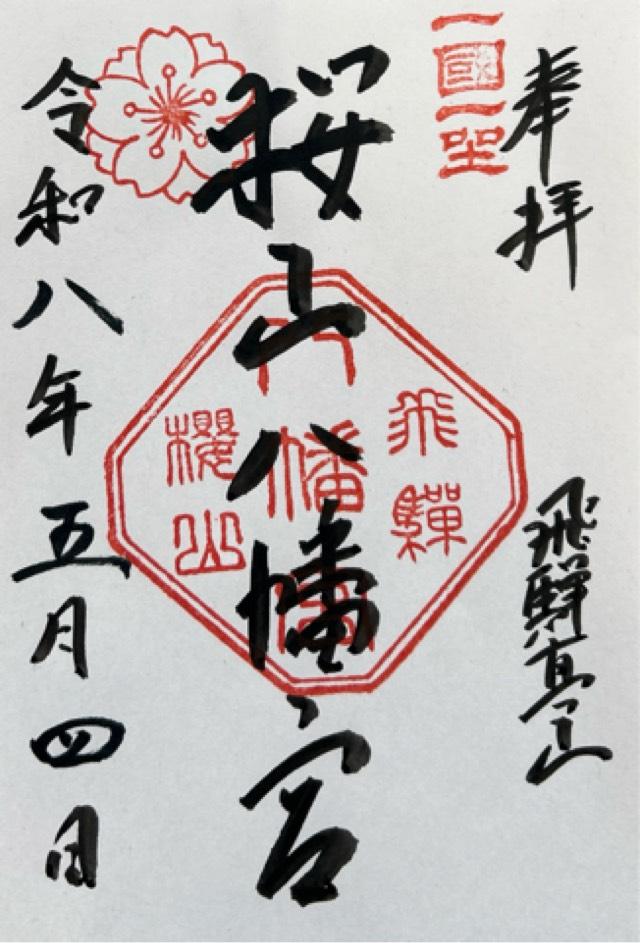 奉拝
一國一社
飛騨高山
桜山八幡宮
飛驒
八幡宮
櫻山
令和八年五月四日